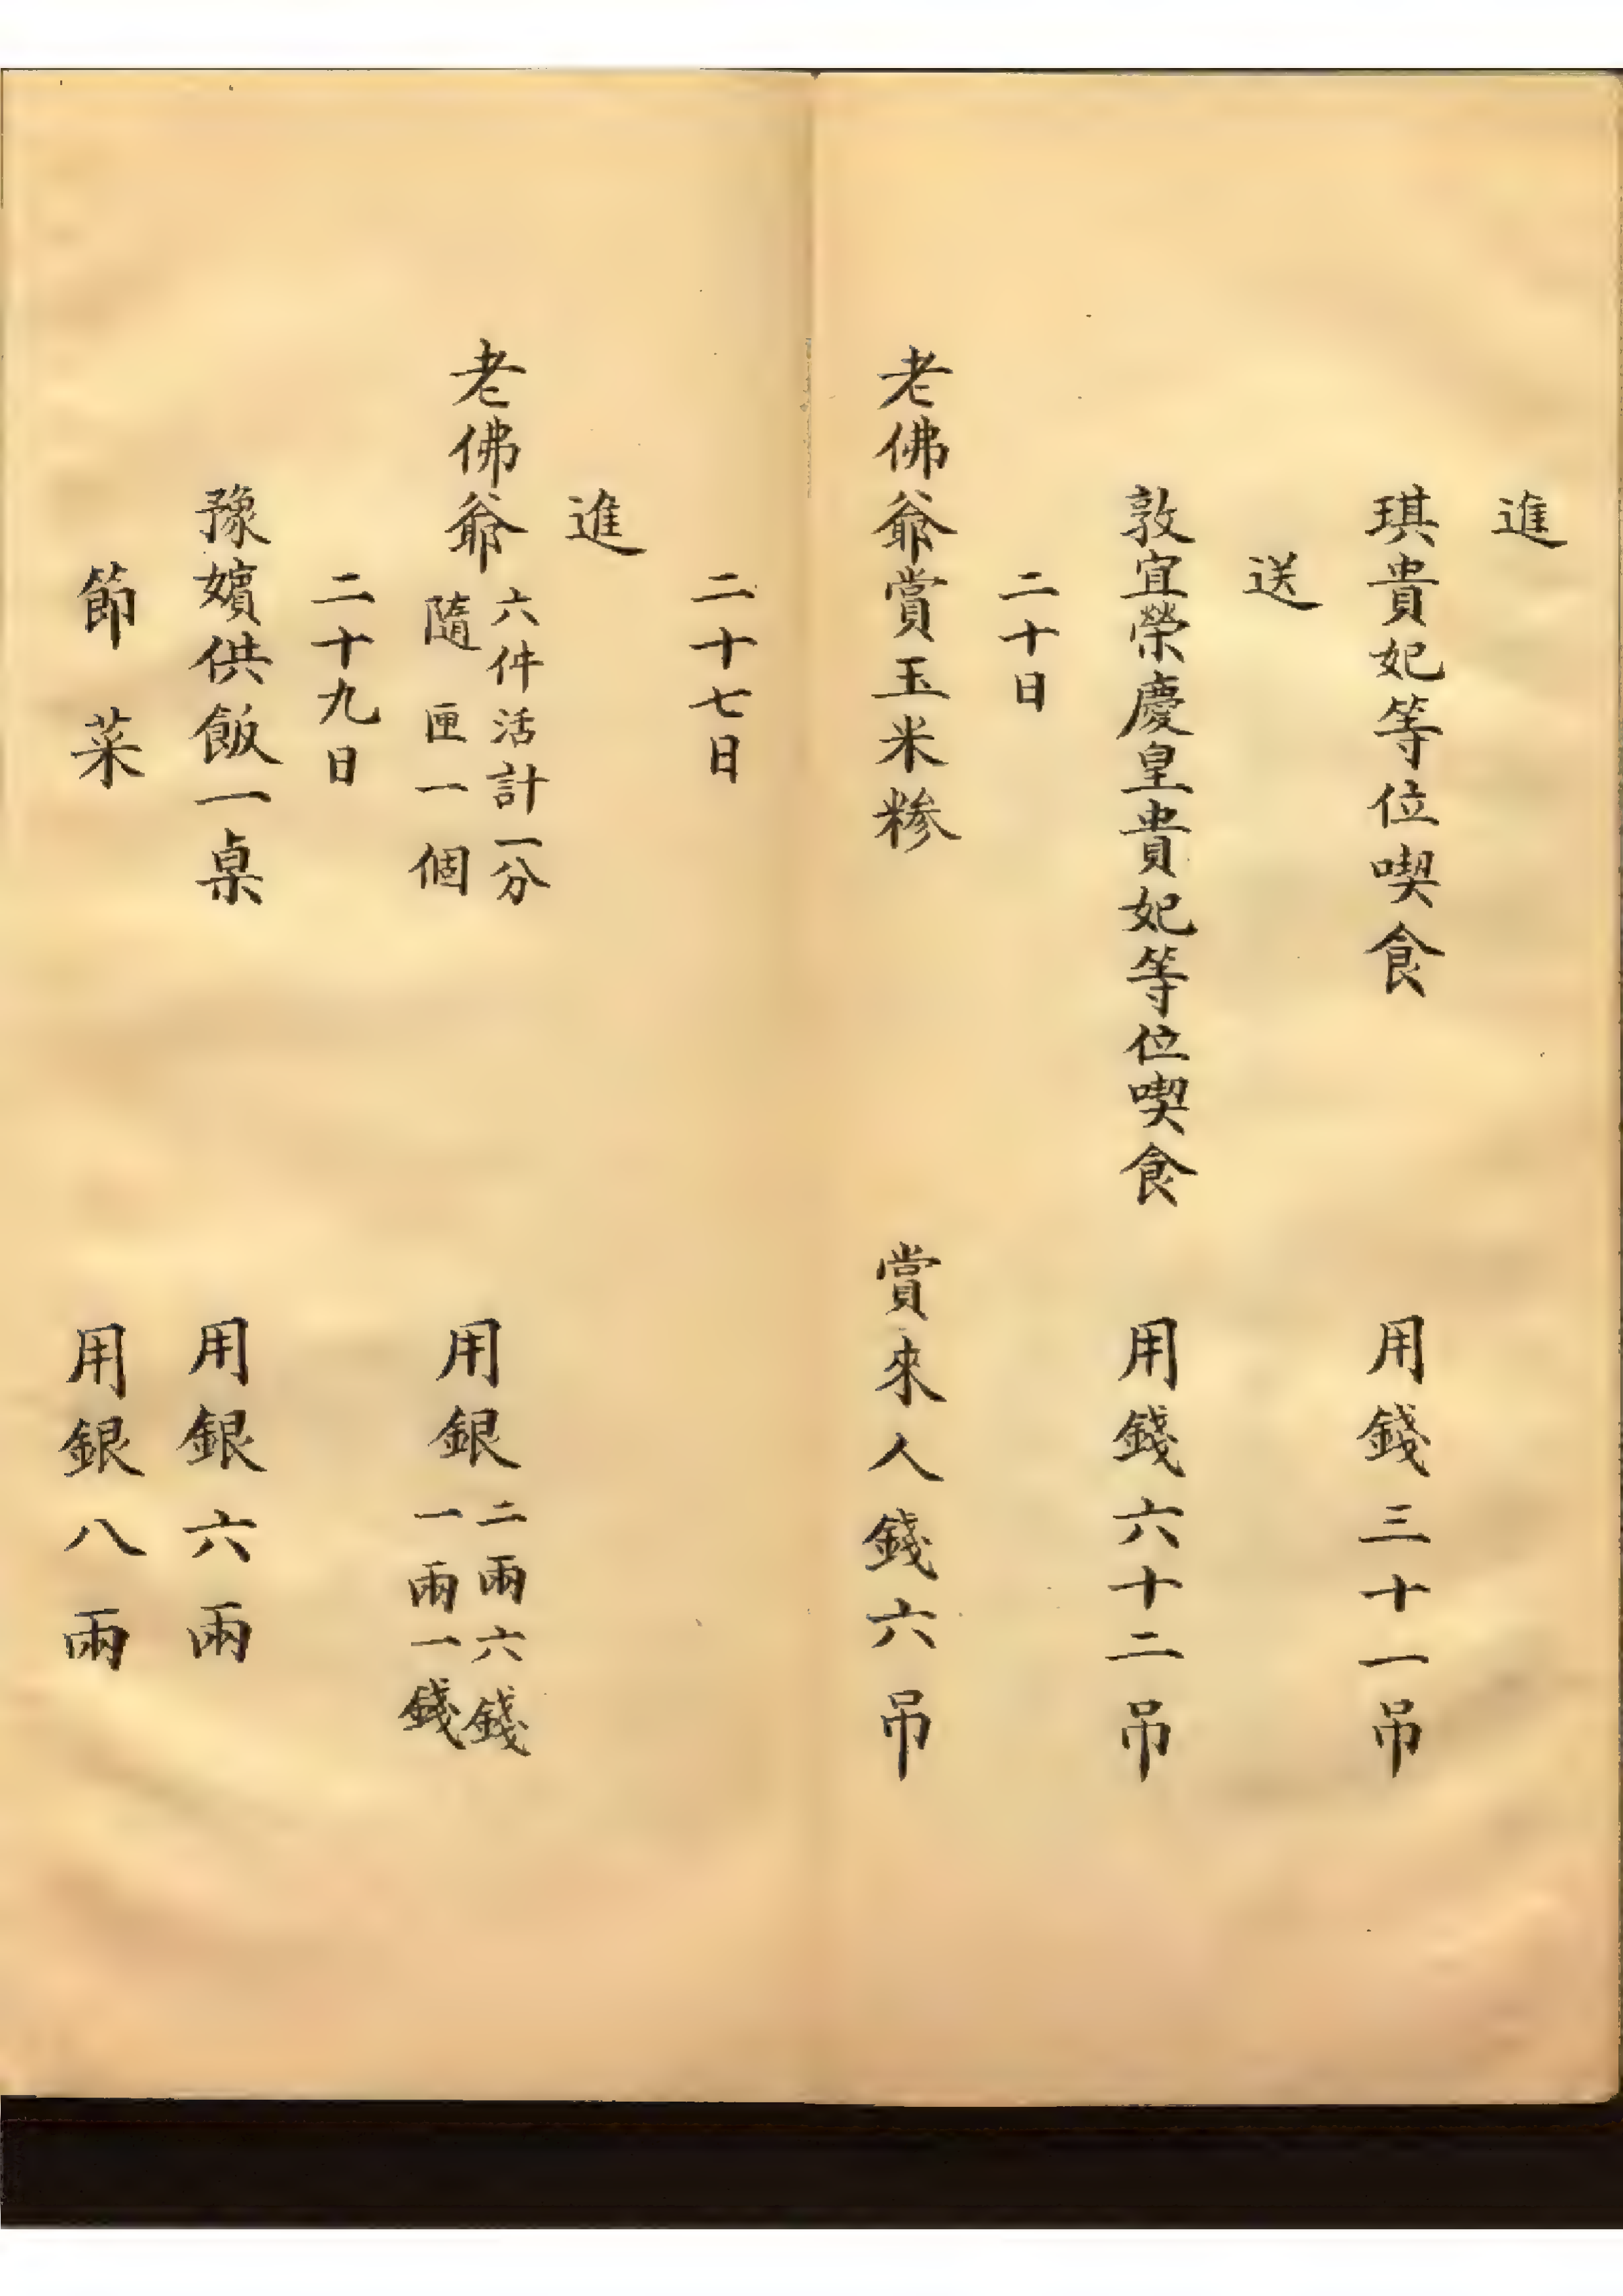 進
琪貴妃等位喫食 用錢三十一吊
送
敦宜榮慶皇貴妃等位喫食 用錢六十二吊
二十日
老佛爺賞玉米糝 賞來人錢六吊
二十七日
進
老佛爺 六件活計一分 隨匣一個 用銀 二兩六錢 一兩一錢
二十九日
豫嬪供飯一桌 用銀六兩
節菜 用銀八兩